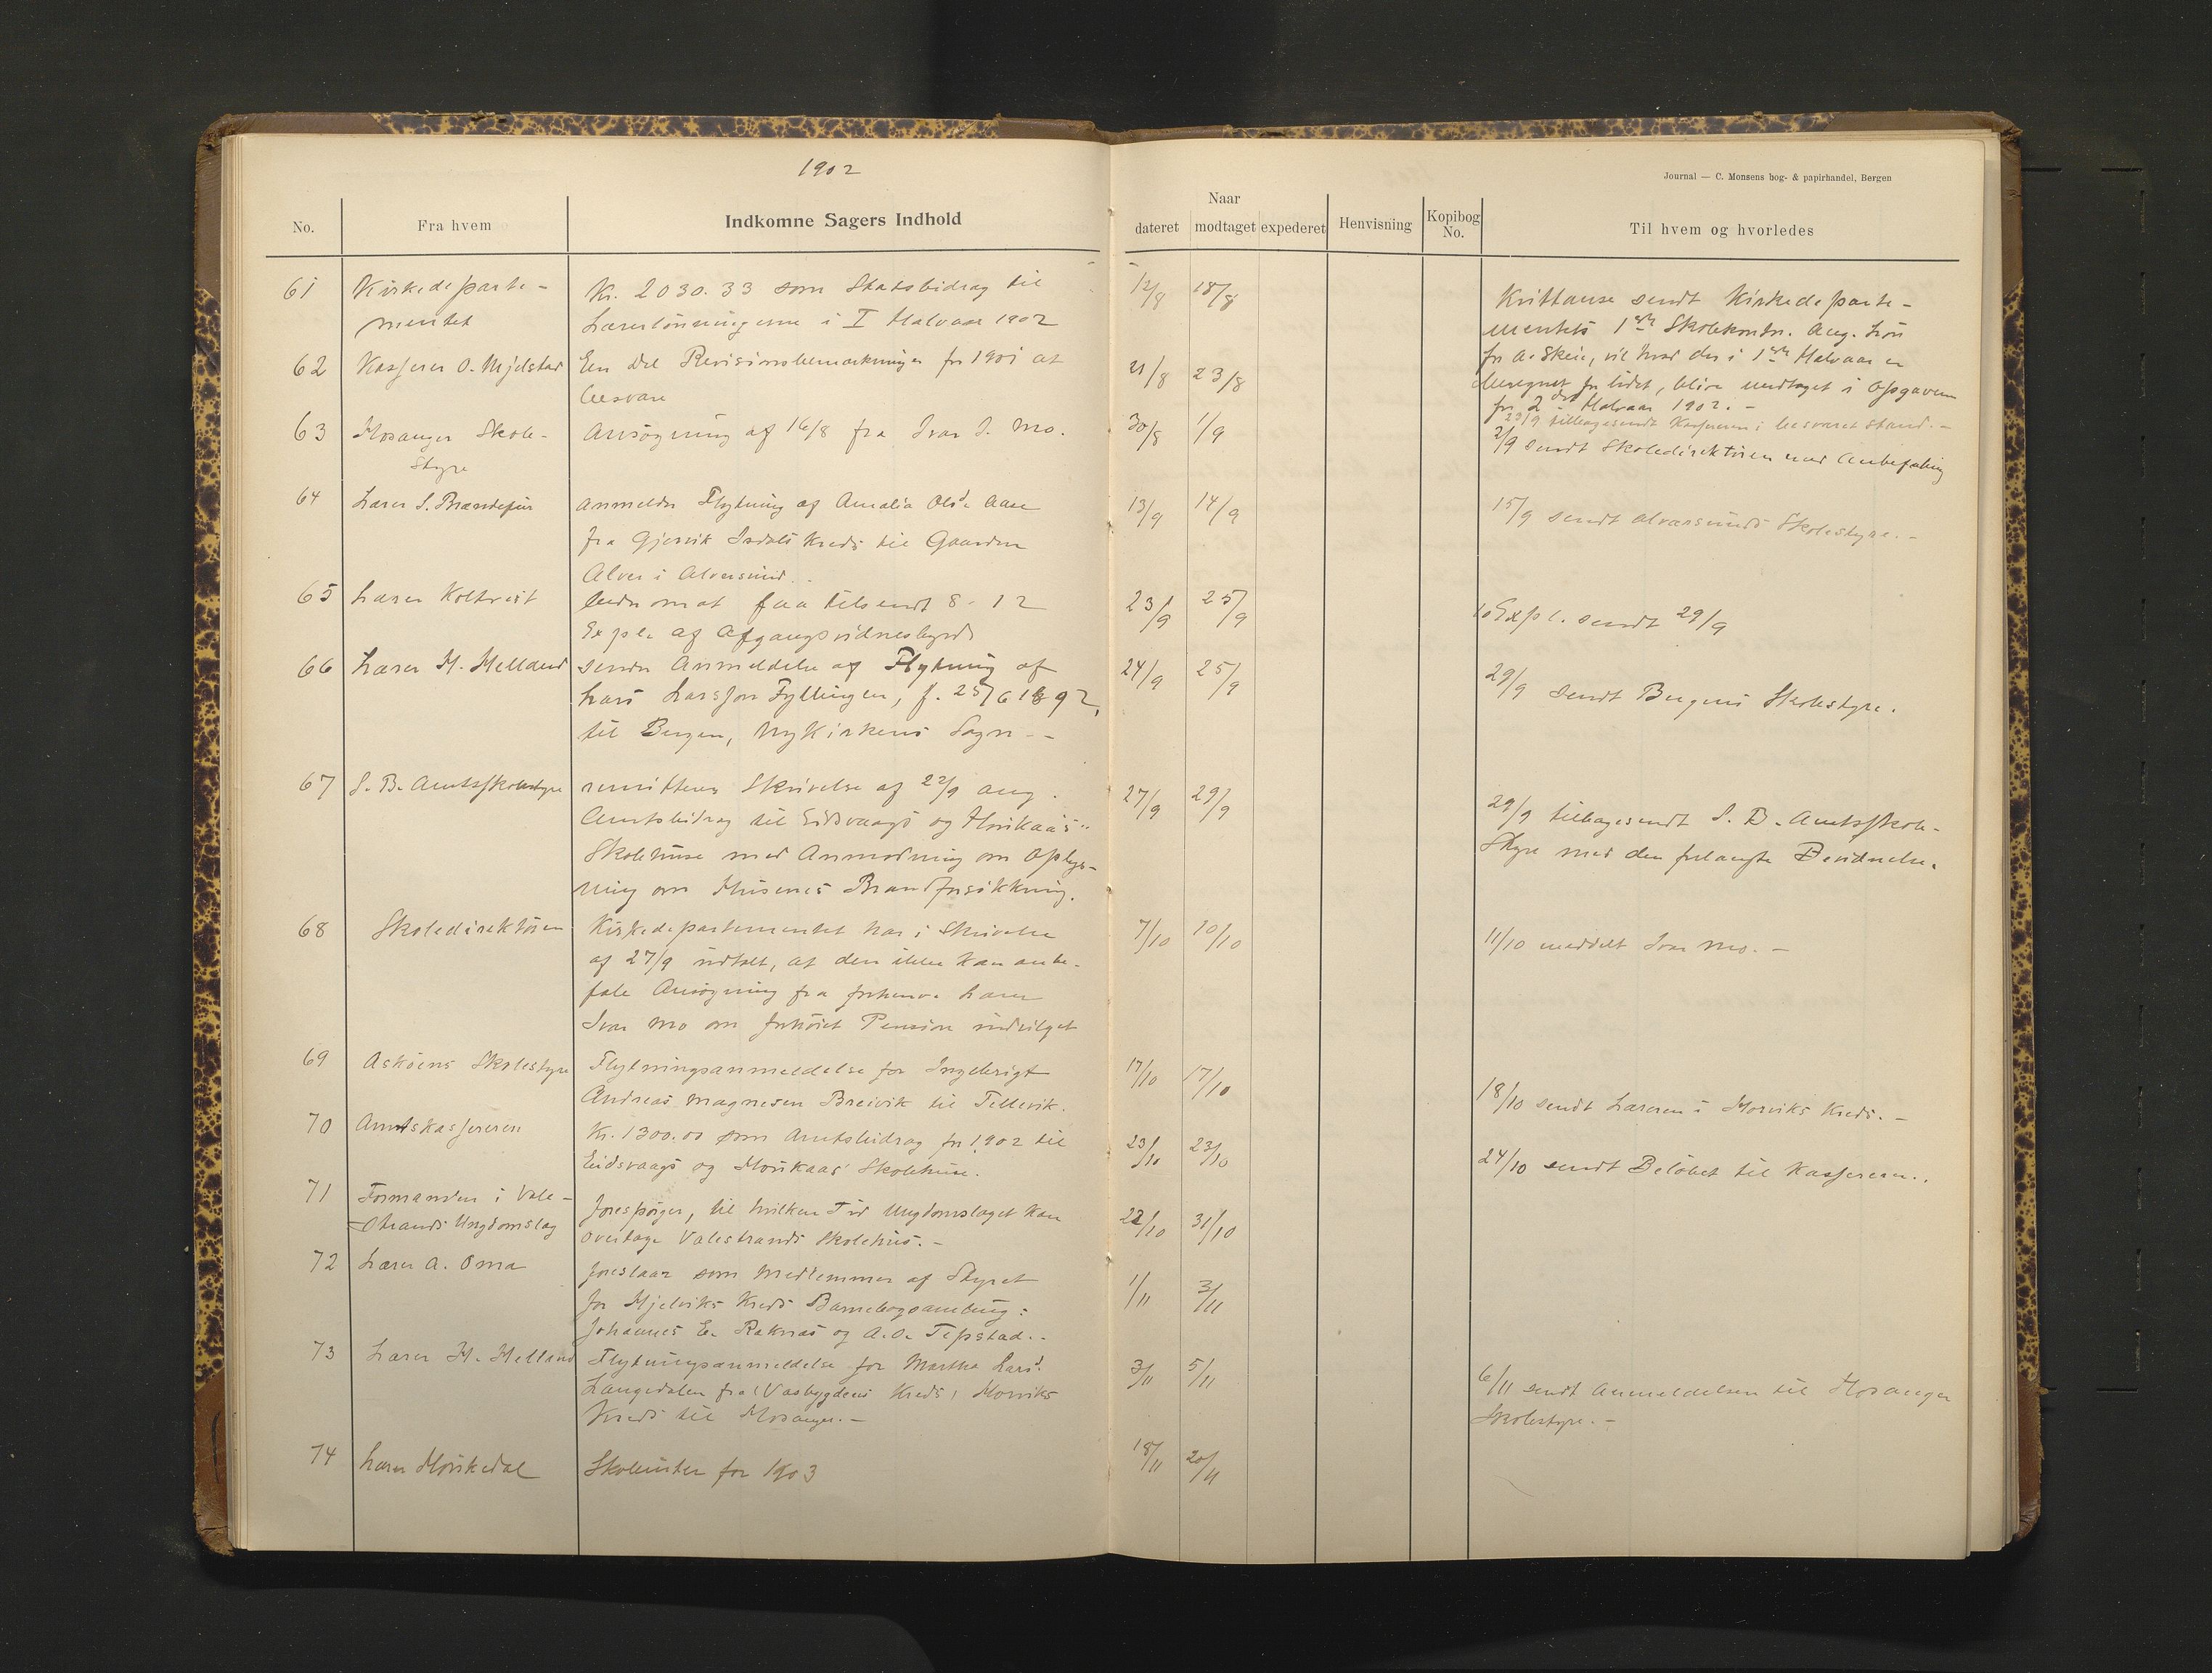 1902
Journal — C. Monsens bog- & papirhandel, Bergen
No.
Fra hvem
Indkomne Sagers Indhold
Naar
dateret modtaget expederet
Henvisning
Kopibog No.
Til hvem og hvorledes
61 Kirkedeparte-
mentet
Kr. 2030.33 som Statsbidrag til
Lærerlønningerne i I Halvaar 1902
12/8 18/8
Kvittanse sendt Kirkedeparte-
mentets 1ste Skolekontor. Ang. Løn
for A. Skeie, vil hvad der i 1ste Halvaar er
beregnet for lidet, blive medtaget i Opgaven
for 2det Halvaar 1902. -
62 Kasserer O. Mjelstad
En Del Revisionsbemærkninger for 1901 at
besvare
21/8 23/8
29/9 tilbagesendt Kassereren i besvaret Stand. -
63 Hosanger Skole-
styre
Ansøgning af 16/8 fra Ivar J. Mo.
30/8 1/9
2/9 sendt Skoledirektøren med Anbefaling
64 Lærer S. Brændefur
anmelder Flytning af Amalia Olsd.
fra Gjervik Isdals Kreds til Gaarden
Alver i Alversund. -
13/9 14/9
15/9 sendt Alversunds Skolestyre. -
65 Lærer Koltveit
beder om at faa tilsendt 8 - 12
Expl. af Afgangsvidnesbyrd
23/9 25/9
10 Expl. sendt 29/9
66 Lærer H. Helland
sender Anmeldelse af Flytning af
Lars Larsson Fyllingen, f. 25/6 1892,
til Bergen, Nykirkens Sogn - -
24/9 25/9
29/9 sendt Bergens Skolestyre.
67 S. B. Amtsskolestyre
remitterer Skrivelse af 22/9 ang.
Amtsbidrag til Eidsvaags og Horikaas
Skolehuse med Anmodning om Oplys-
ning om Husenes Brandforsikkring.
27/9 29/9
29/9 tilbagesendt S. B. Amtsskole-
styre med den forlangte Bevidnelse.
68 Skoledirektøren
Kirkedepartementet har i Skrivelse
af 27/9 udtalt, at den ikke kan anbe-
fale Ansøgning fra forhenv. Lærer
Ivar Mo om forhøiet Pension indvilget
7/10 10/10
11/10 meddelt Ivar Mo. -
69 Askøens Skolestyre
Flytningsanmeldelse for Ingebrigt
Andreas Magnesen Breivik til Tellevik.
17/10 17/10
18/10 sendt Læreren i Morviks Kreds. -
70 Amtskassereren
Kr. 1300.00 som Amtsbidrag for 1902 til
Eidsvaags og Horikaas Skolehuse.
23/10 23/10
24/10 sendt Beløbet til Kassereren. .
71 Formanden i Vale-
strands Ungdomslag
forespørger, til hvilken Tid Ungdomslaget kan
overtage Valestrands Skolehus. -
22/10 31/10
72 Lærer A. Oma
foreslaar som Medlemmer af Styret
for Mjelviks Kreds Barnebogsamling:
Johannes E. Raknes og A. O. Tepstad. .
1/11 3/11
73 Lærer H. Helland
Flytningsanmeldelse for Martha Larsd.
Langedalen fra (Vasbygdens Kreds) Morviks
Kreds til Hosanger. -
3/11 5/11
6/11 sendt Anmeldelsen til Hosanger
Skolestyre. -
74 Lærer Horikedal
Skoleruter for 1903
18/11 20/11